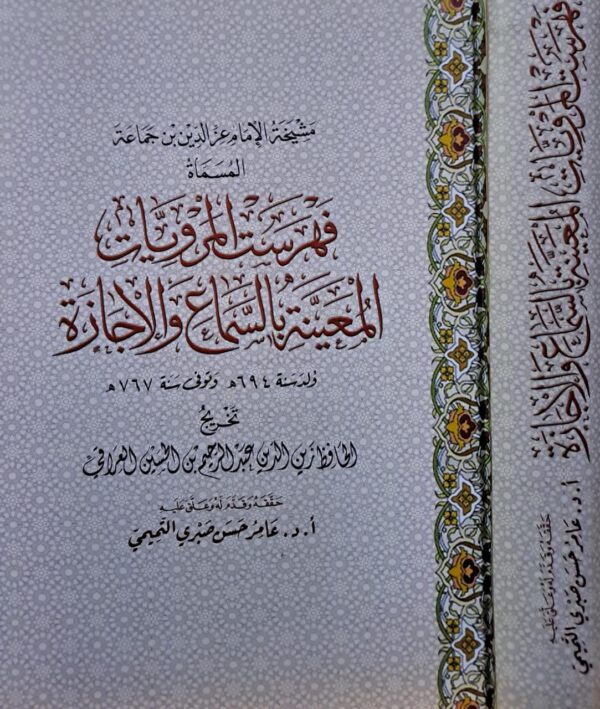 مشيخة الإمام عز الدين بن جماعة
المسماة
فهرست المرويات
المعينة بالسماع والإجازة
ولد سنة ٦٩٤ه‍ وتوفي سنة ٧٦٧ه‍
تخريج
الحافظ زين الدين عبد الرحيم بن الحسين العراقي
حققه وقدم له وعلق عليه
أ.د. عامر حسن صبري التميمي
فهرست المرويات المعينة بالسماع والإجازة
حققه وقدم له وعلق عليه
أ.د. عامر حسن صبري التميمي